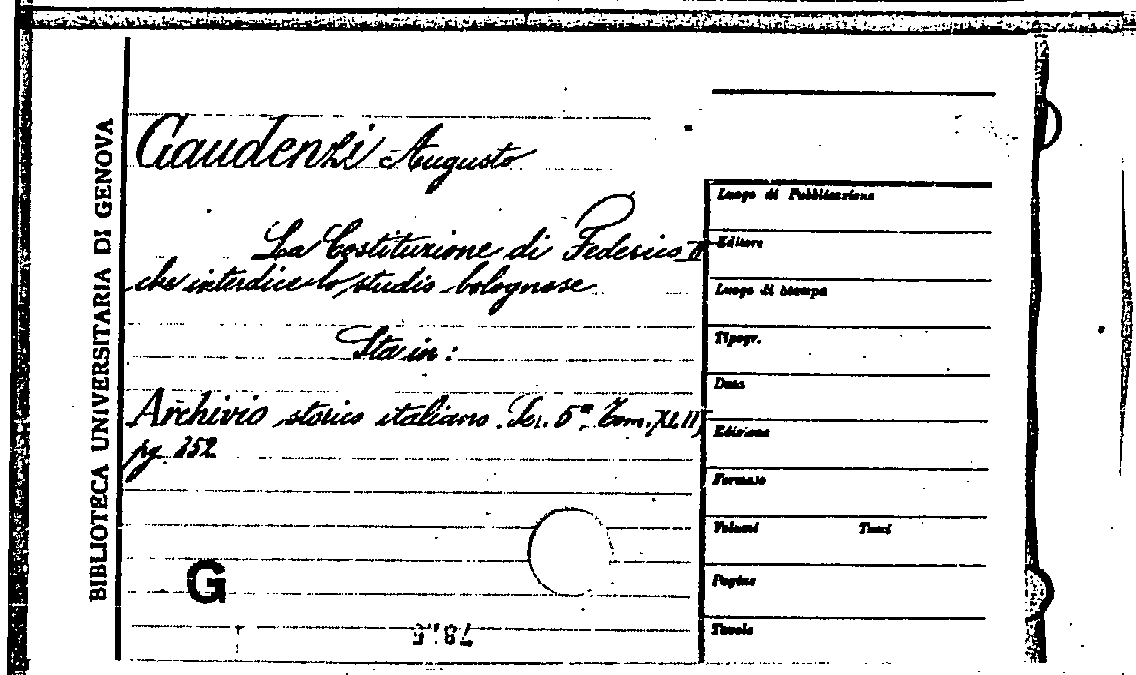 BIBLIOTECA UNIVERSITARIA DI GENOVA
Gaudenzi Augusto
La Costituzione di Federico II
che interdice lo studio bolognese
Sta in:
Archivio storico italiano. Ser. 5ª. Tom. XLII,
pg. 352
G
Luogo di Pubblicazione
Editore
Luogo di stampa
Tipogr.
Data
Edizione
Formato
Volumi Tomi
Pagine
Tavole